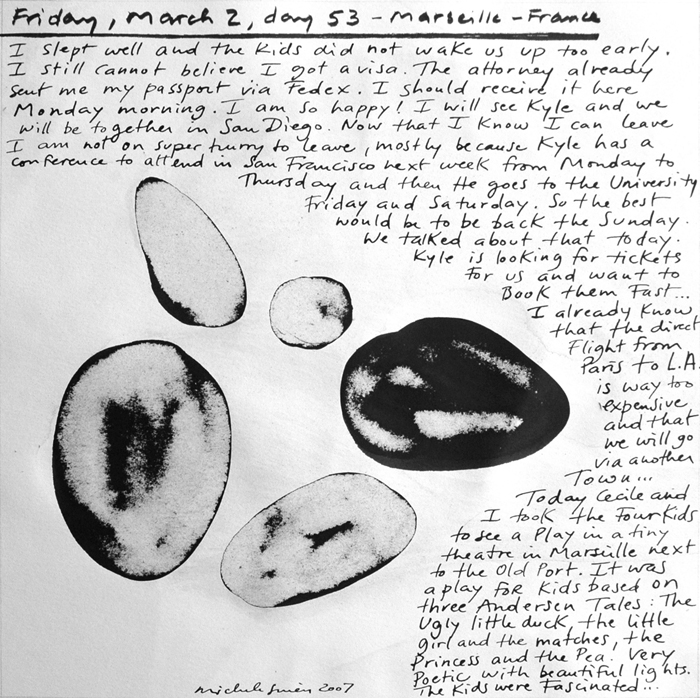 Friday, March 2, day 53 - Marseille - France
I slept well and the Kids did not wake us up too early.
I still cannot believe I got a visa. The attorney already
sent me my passport via Fedex. I should receive it here
Monday morning. I am so happy! I will see Kyle and we
will be together in San Diego. Now that I Know I can leave
I am not on super hurry to leave, mostly because Kyle has a
conference to attend in San Francisco next week from Monday to
Thursday and then He goes to the University
Friday and Saturday. So the best
would be to be back the Sunday.
We talked about that today.
Kyle is looking for tickets
for us and want to
Book them Fast...
I already Know
that the direct
Flight from
Paris to L.A.
is way too
expensive
and that
we will go
via another
Town...
Today Cecile and
I took the Four Kids
to see a Play in a tiny
theatre in Marseille next
to the Old Port. It was
a play for Kids based on
three Andersen Tales: The
Ugly little duck, the little
girl and the matches, the
Princess and the Pea. Very
Poetic with beautiful lights.
The Kids were Fascinated...
2007